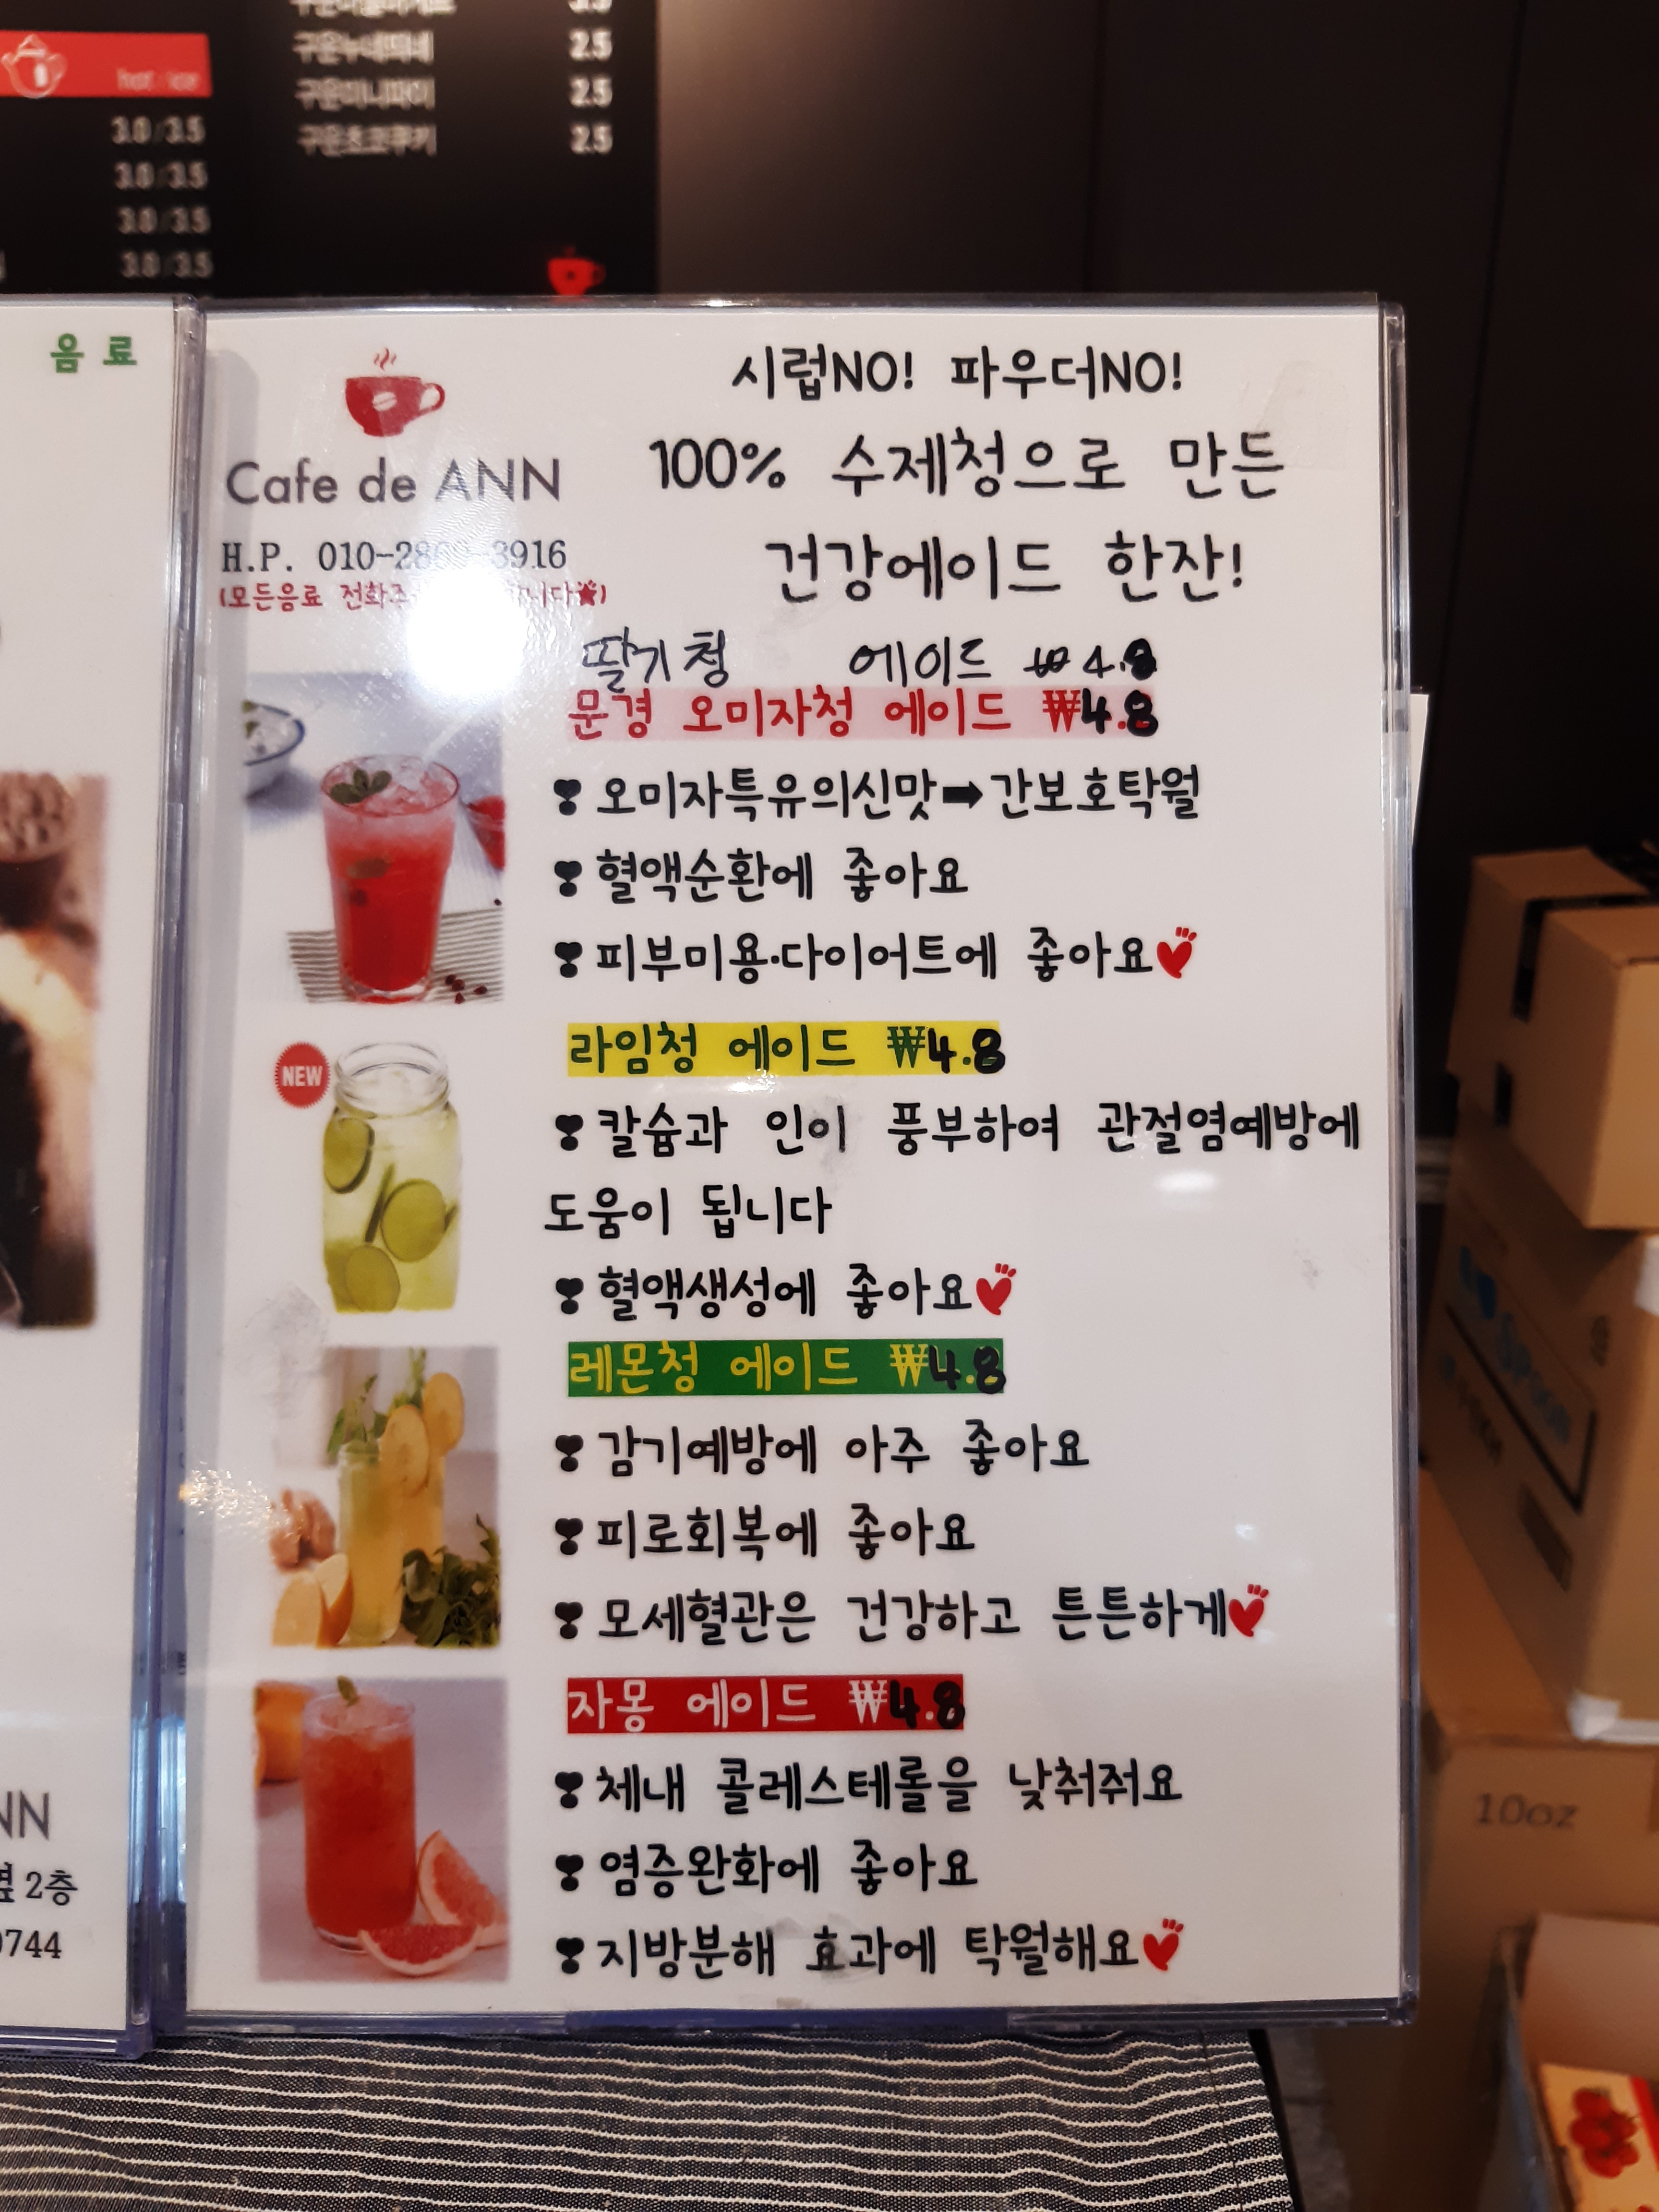 hot / ice
3.0/3.5
3.0/3.5
3.0/3.5
3.0/3.5
2.5
구운미니파이 2.5
구운초코쿠키 2.5
음료
NN
2층
0744
Cafe de ANN
H.P. 010-28 3916
(모든음료
시럽NO! 파우더NO!
100% 수제청으로 만든
건강에이드 한잔!
딸기청 에이드 ₩4.8
문경 오미자청 에이드 ₩4.8
❣오미자특유의신맛➡간보호탁월
❣혈액순환에 좋아요
❣피부미용·다이어트에 좋아요
NEW
라임청 에이드 ₩4.8
❣칼슘과 인이 풍부하여 관절염예방에
도움이 됩니다
❣혈액생성에 좋아요
레몬청 에이드 ₩4.8
❣감기예방에 아주 좋아요
❣피로회복에 좋아요
❣모세혈관은 건강하고 튼튼하게
자몽 에이드 ₩4.8
❣체내 콜레스테롤을 낮춰줘요
❣염증완화에 좋아요
❣지방분해 효과에 탁월해요
10oz